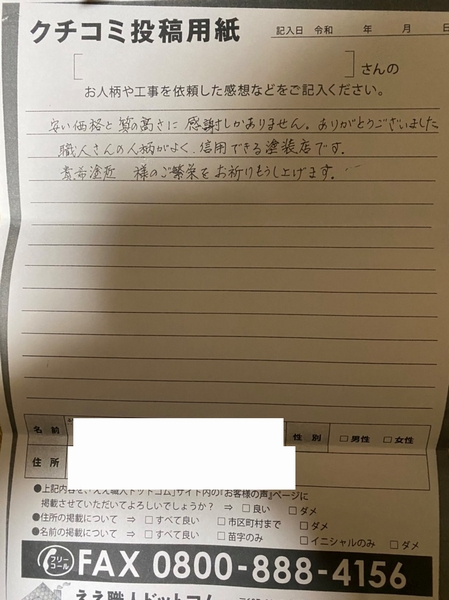 クチコミ投稿用紙
記入日 令和 年 月 日
[ ]さんの
お人柄や工事を依頼した感想などをご記入ください。
安い価格と質の高さに感謝しかありません。ありがとうございました
職人さんの人柄がよく、信用できる塗装店です。
様のご繁栄をお祈りもうし上げます。
名前
性別 □男性 □女性
住所
●上記内容を、ええ職人ドットコム」サイト内の「お客様の声」ページに
掲載させていただいてよろしいでしょうか? ⇒ □良い □ダメ
●住所の掲載について ⇒ □すべて良い □市区町村まで □ダメ
●名前の掲載について ⇒ □すべて良い □苗字のみ □イニシャルのみ □ダメ
フリーコール FAX 0800-888-4156
ええ職人ドットコム